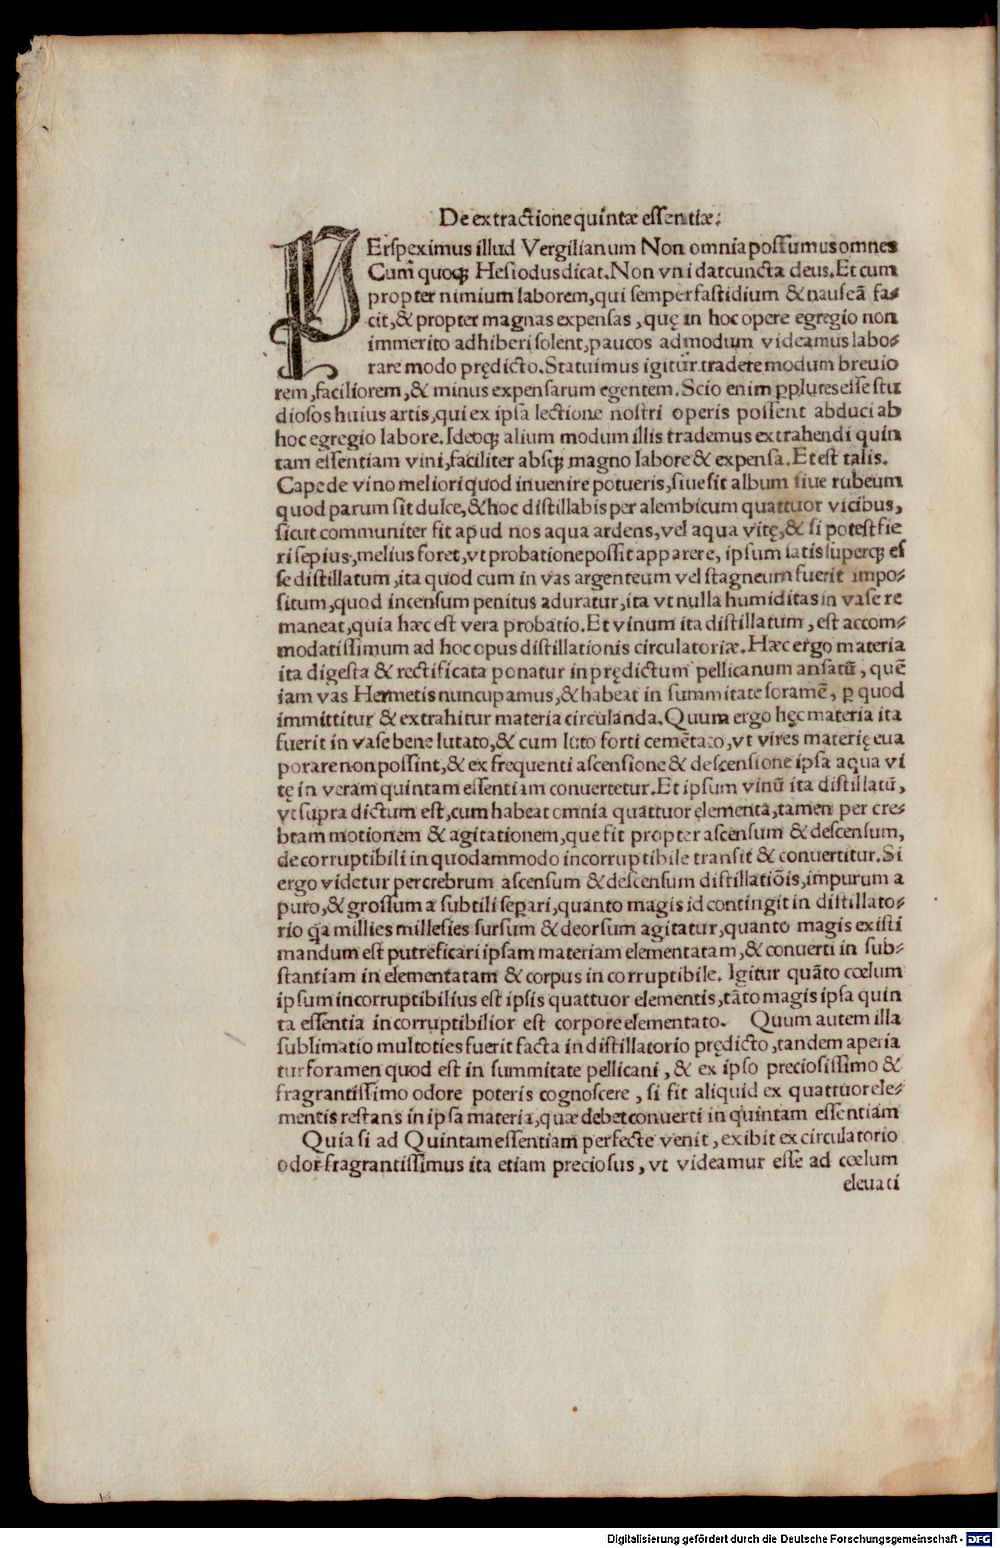 De extractione quintæ eſſentiæ:
PErſpeximus illud Vergilianum Non omnia poſſumus omnes
Cum quoqꝫ Heſiodus dicat. Non vni dat cuncta deus. Et cum
propter nimium laborem, qui ſemper faſtidium & nauſeã fa⸗
cit, & propter magnas expenſas, quę in hoc opere egregio non
immerito adhiberi ſolent, paucos admodum videamus labo⸗
rare modo prędicto. Statuimus igitur tradere modum breuio
rem, faciliorem, & minus expenſarum egentem. Scio enim ꝑplures eſſe ſtu
dioſos huius artis, qui ex ipſa lectione noſtri operis poſſent abduci ab
hoc egregio labore. Ideoqꝫ alium modum illis trademus extrahendi quin
tam eſſentiam vini, faciliter abſqꝫ magno labore & expenſa. Et eſt talis.
Cape de vino meliori quod inuenire potueris, ſiue ſit album ſiue rubeum
quod parum ſit dulce, & hoc diſtillabis per alembicum quattuor vicibus,
ſicut communiter fit apud nos aqua ardens, vel aqua vitę, & ſi poteſt fie
ri ſepius, melius foret, vt probatione poſſit apparere, ipſum ſatis ſuperqꝫ eſ
ſe diſtillatum, ita quod cum in vas argenteum vel ſtagneum fuerit impo⸗
ſitum, quod incenſum penitus aduratur, ita vt nulla humiditas in vaſe re
maneat, quia hæc eſt vera probatio. Et vinum ita diſtillatum, eſt accom⸗
modatiſſimum ad hoc opus diſtillationis circulatoriæ. Hæc ergo materia
ita digeſta & rectificata ponatur in prędictum pellicanum anſatũ, quẽ
iam vas Hermetis nuncupamus, & habeat in ſummitate foramẽ, ꝑ quod
immittitur & extrahitur materia circulanda. Quum ergo hęc materia ita
fuerit in vaſe bene lutato, & cum luto forti cemẽtato, vt vires materię eua
porare non poſſint, & ex frequenti aſcenſione & deſcenſione ipſa aqua vi
tę in veram quintam eſſentiam conuertetur. Et ipſum vinũ ita diſtillatũ,
vt ſupra dictum eſt, cum habeat omnia quattuor elementa, tamen per cre⸗
bram motionem & agitationem, que fit propter aſcenſum & deſcenſum,
de corruptibili in quodammodo incorruptibile tranſit & conuertitur. Si
ergo videtur per crebrum aſcenſum & deſcenſum diſtillatiõis, impurum a
puro, & groſſum a ſubtili ſepari, quanto magis id contingit in diſtillato⸗
rio q̃a millies milleſies ſurſum & deorſum agitatur, quanto magis exiſti
mandum eſt putreficari ipſam materiam elementatam, & conuerti in ſub⸗
ſtantiam in elementatam & corpus in corruptibile. Igitur quãto cœlum
ipſum incorruptibilius eſt ipſis quattuor elementis, tãto magis ipſa quin
ta eſſentia incorruptibilior eſt corpore elementato. Quum autem illa
ſublimatio multoties fuerit facta in diſtillatorio prędicto, tandem aperia
tur foramen quod eſt in ſummitate pellicani, & ex ipſo precioſiſſimo &
fragrantiſſimo odore poteris cognoſcere, ſi ſit aliquid ex quattuor ele⸗
mentis reſtans in ipſa materia, quæ debet conuerti in quintam eſſentiam
Quia ſi ad Quintam eſſentiam perfecte venit, exibit ex circulatorio
odor fragrantiſſimus ita etiam precioſus, vt videamur eſſe ad cœlum
eleuati
Digitalisierung gefördert durch die Deutsche Forschungsgemeinschaft - DFG